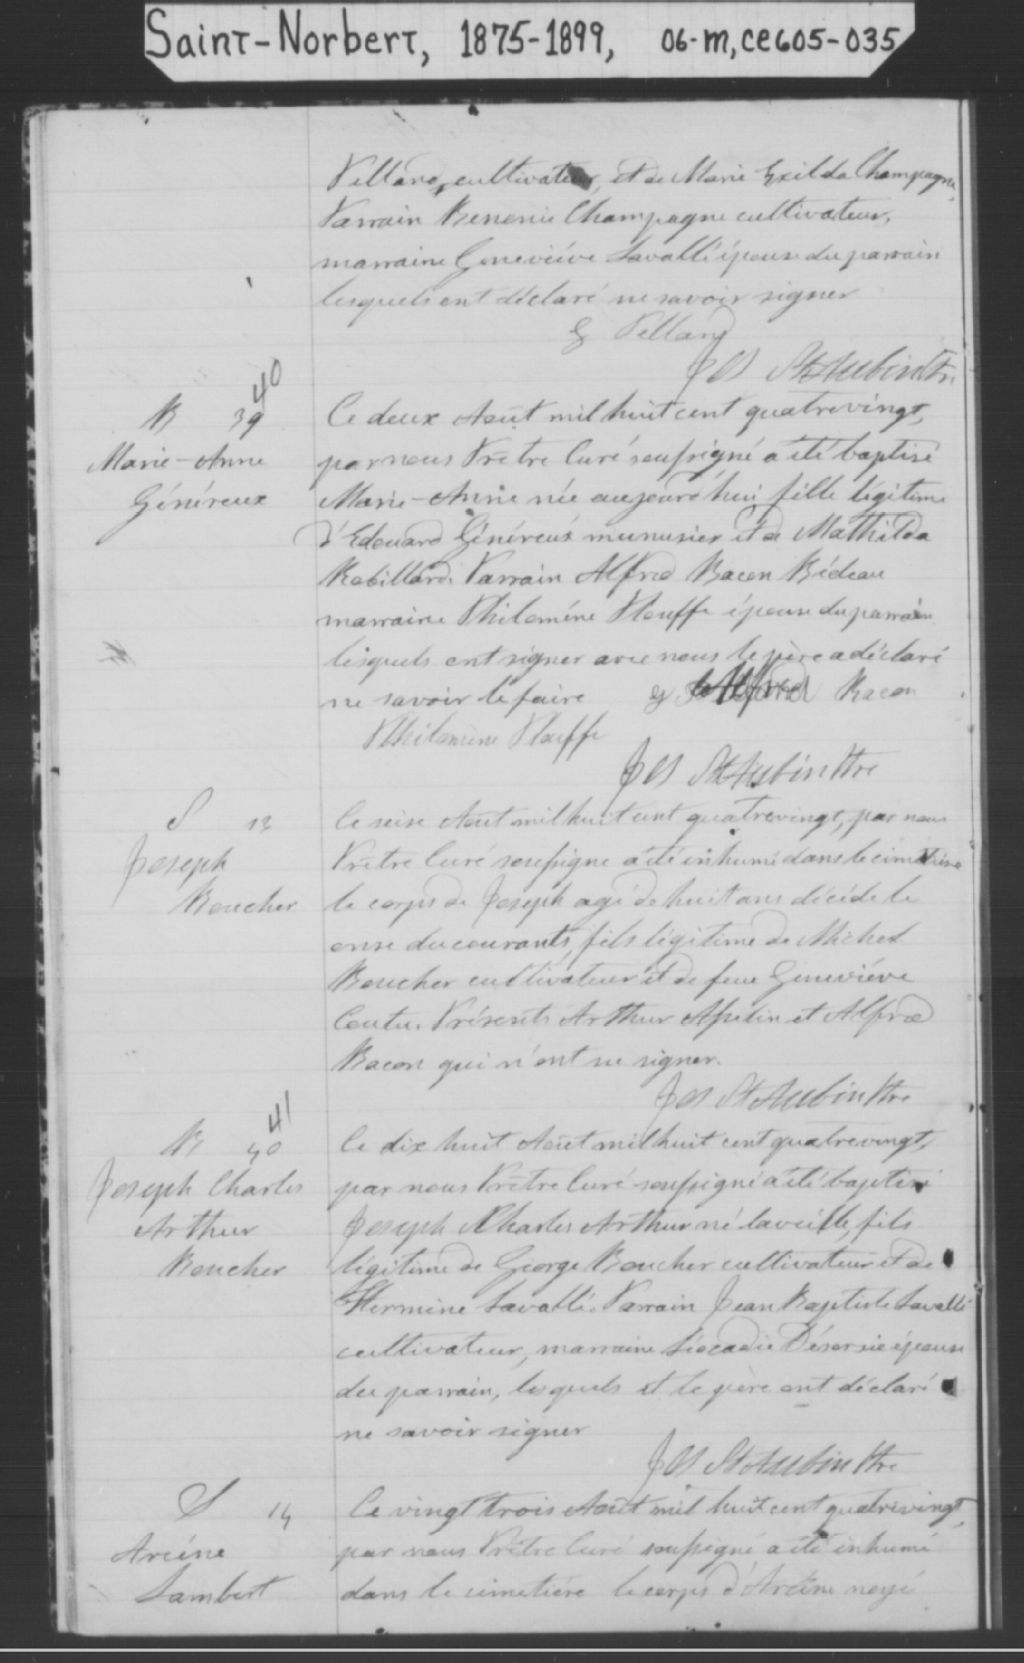 Saint-Norbert, 1875-1899, 06-M,CE605-035
cultivateur, et de Marie Exilda Champagne
Parrain Benonie Champagne cultivateur,
marraine Geneviève Lavallé épouse du parrain
lesquels ont déclaré ne savoir signer
Jos St Aubin Ptre
40
B 39
Marie-Anne
Généreux
Ce deux Août mil huit cent quatrevingt,
par nous Prêtre Curé soussigné a été baptisé
Marie-Anne née aujourd'hui fille légitime
d'Edouard Généreux menusier et de Mathilda
Robillard. Parrain Alfred Bacon Bédeau
marraine Philomène Plouffe épouse du parrain
lesquels ont signer avec nous le père a déclaré
ne savoir le faire Alfred Bacon
Philomène Plouffe
Jos St Aubin Ptre
S 13
Joseph
Boucher
Ce seise Août mil huit cent quatrevingt, par nous
Prêtre Curé soussigné a été inhumé dans le cimetière
le corps de Joseph agé de huit ans décédé le
onse du courants, fils légitime de Michel
Boucher cultivateur et de feue Geneviève
Coutu. Présents Arthur et Alfred
Bacon qui n'ont su signer.
Jos St Aubin Ptre
41
B 40
Joseph Charles
Arthur
Boucher
Ce dix huit Août mil huit cent quatrevingt,
par nous Prêtre Curé soussigné a été baptisé
Joseph Charles Arthur né la veille, fils
légitime de George Boucher cultivateur et de
Hermine Lavallé. Parrain Jean Baptiste Lavallé
cultivateur, marraine Léocadie épouse
du parrain, lesquels et le père ont déclaré
ne savoir signer
Jos St Aubin Ptre
S 14
Arcène
Lambert
Ce vingt trois Août mil huit cent quatrevingt,
par nous Prêtre Curé soussigné a été inhumé
dans le cimetière le corps d'Arcène noyé